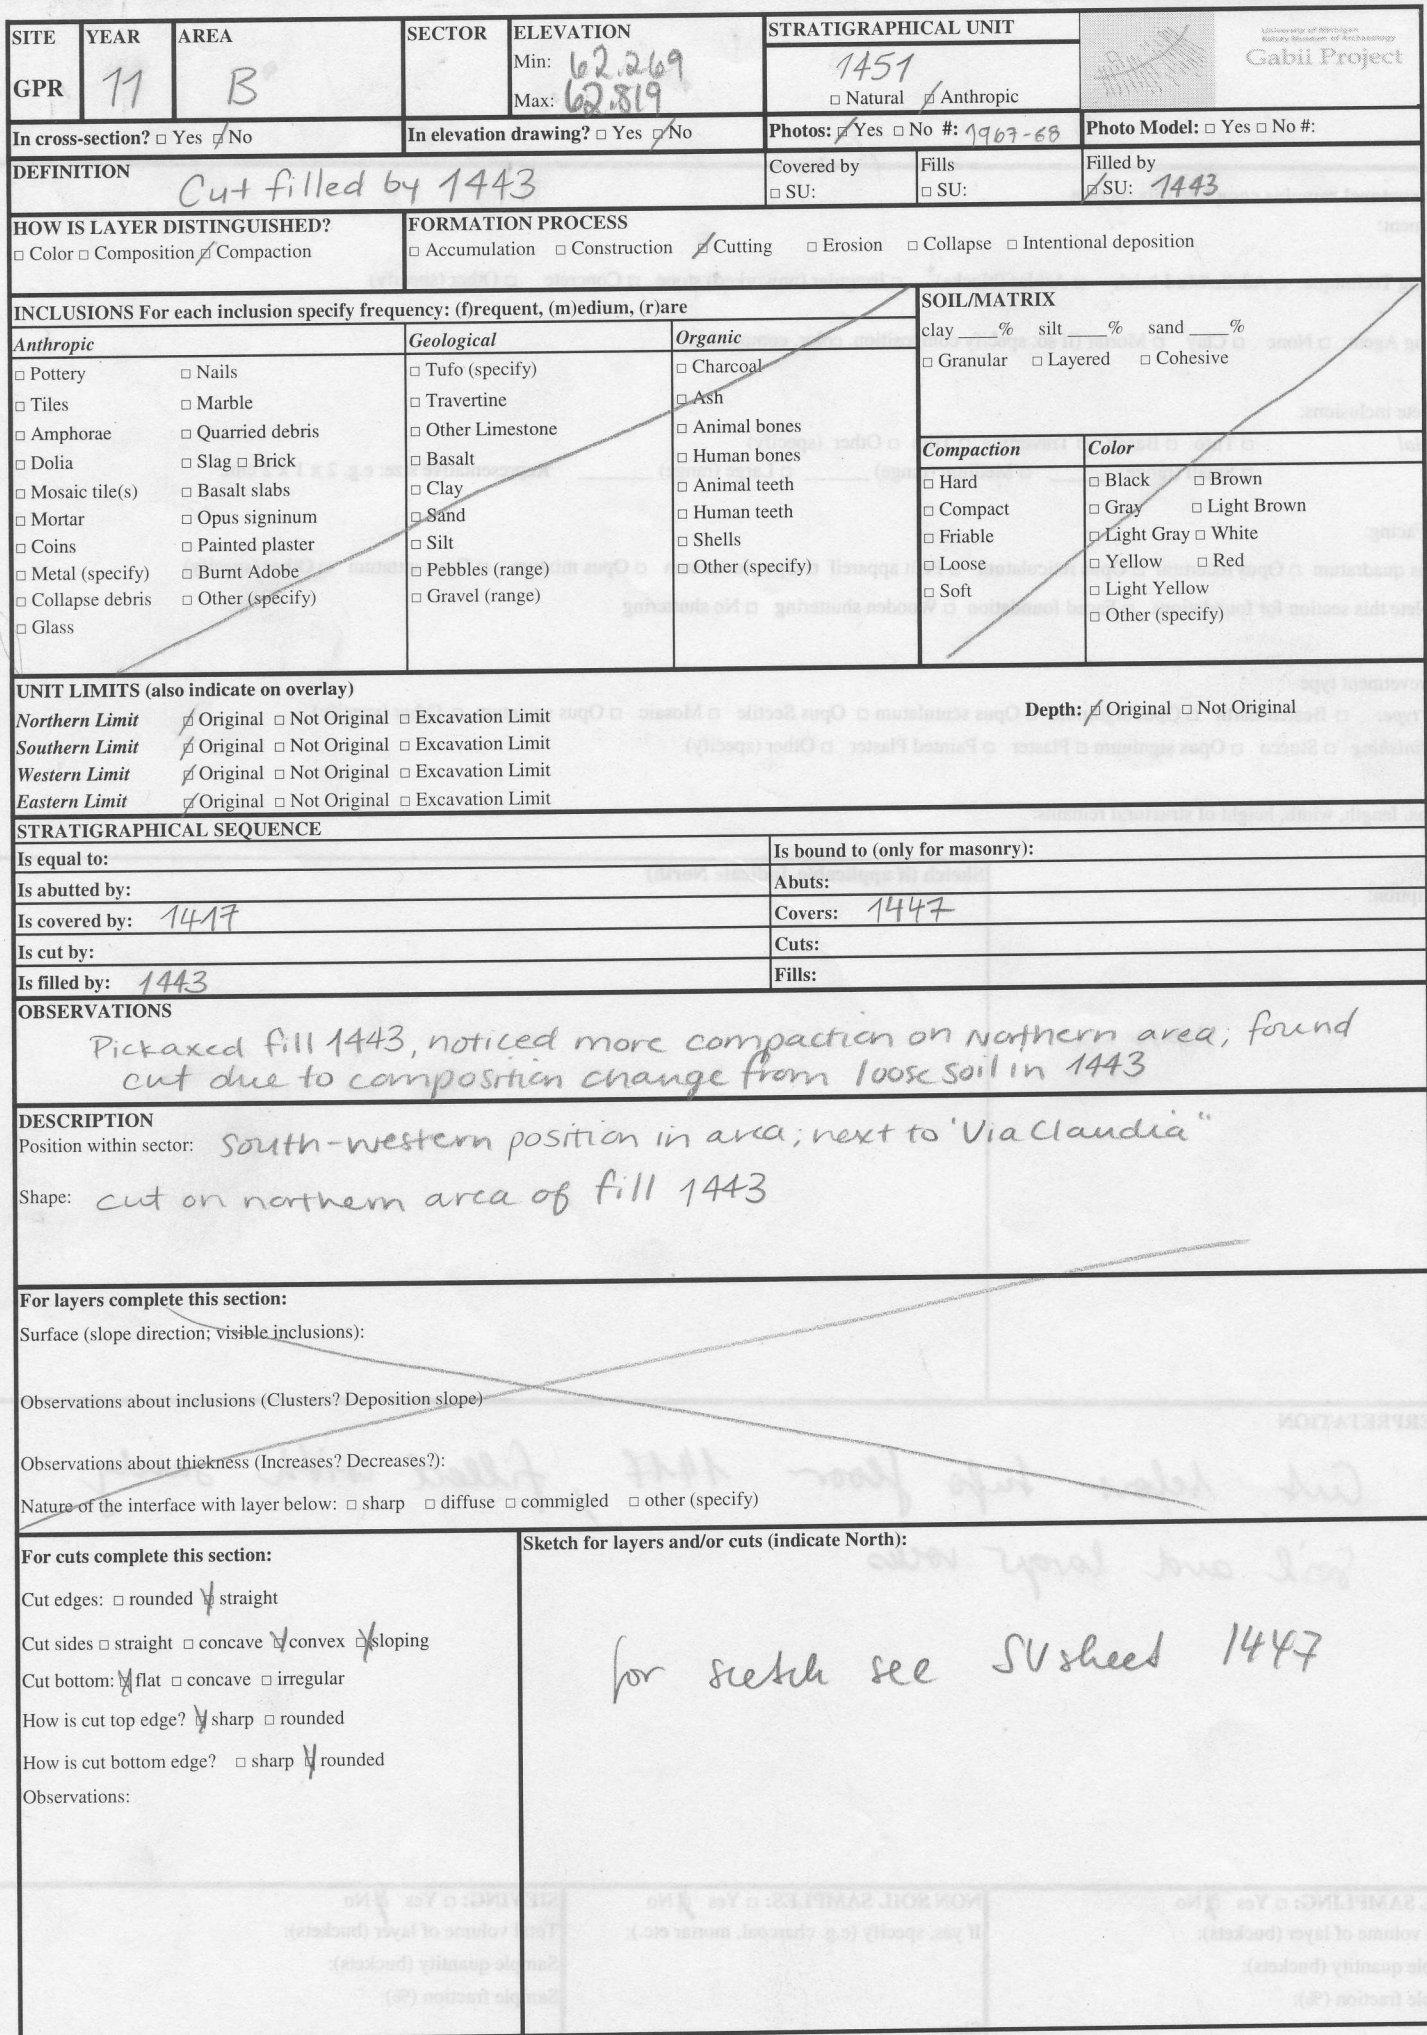 SITE YEAR AREA SECTOR ELEVATION STRATIGRAPHICAL UNIT
GPR 11 B Min: 62.269 Max: 62.819 1451
□ Natural ☑ Anthropic
University of Michigan
Kelsey Museum of Archaeology
Gabii Project
In cross-section? □ Yes ☑ No In elevation drawing? □ Yes ☑ No Photos: ☑ Yes □ No #: 1967-68 Photo Model: □ Yes □ No #:
DEFINITION Cut filled by 1443 Covered by □ SU: Fills □ SU: Filled by ☑ SU: 1443
HOW IS LAYER DISTINGUISHED?
□ Color □ Composition ☑ Compaction
FORMATION PROCESS
□ Accumulation □ Construction ☑ Cutting □ Erosion □ Collapse □ Intentional deposition
INCLUSIONS For each inclusion specify frequency: (f)requent, (m)edium, (r)are
Anthropic
□ Pottery □ Nails
□ Tiles □ Marble
□ Amphorae □ Quarried debris
□ Dolia □ Slag □ Brick
□ Mosaic tile(s) □ Basalt slabs
□ Mortar □ Opus signinum
□ Coins □ Painted plaster
□ Metal (specify) □ Burnt Adobe
□ Collapse debris □ Other (specify)
□ Glass
Geological
□ Tufo (specify)
□ Travertine
□ Other Limestone
□ Basalt
□ Clay
□ Sand
□ Silt
□ Pebbles (range)
□ Gravel (range)
Organic
□ Charcoal
□ Ash
□ Animal bones
□ Human bones
□ Animal teeth
□ Human teeth
□ Shells
□ Other (specify)
SOIL/MATRIX
clay ____% silt ____% sand ____%
□ Granular □ Layered □ Cohesive
Compaction
□ Hard
□ Compact
□ Friable
□ Loose
□ Soft
Color
□ Black □ Brown
□ Gray □ Light Brown
□ Light Gray □ White
□ Yellow □ Red
□ Light Yellow
□ Other (specify)
UNIT LIMITS (also indicate on overlay)
Northern Limit ☑ Original □ Not Original □ Excavation Limit Depth: ☑ Original □ Not Original
Southern Limit ☑ Original □ Not Original □ Excavation Limit
Western Limit ☑ Original □ Not Original □ Excavation Limit
Eastern Limit ☑ Original □ Not Original □ Excavation Limit
STRATIGRAPHICAL SEQUENCE
Is equal to: Is bound to (only for masonry):
Is abutted by: Abuts:
Is covered by: 1417 Covers: 1447
Is cut by: Cuts:
Is filled by: 1443 Fills:
OBSERVATIONS
Pickaxed fill 1443, noticed more compaction on Northern area; found
cut due to composition change from loose soil in 1443
DESCRIPTION
Position within sector: South-western position in area; next to "Via Claudia"
Shape: cut on northern area of fill 1443
For layers complete this section:
Surface (slope direction; visible inclusions):
Observations about inclusions (Clusters? Deposition slope)
Observations about thickness (Increases? Decreases?):
Nature of the interface with layer below: □ sharp □ diffuse □ commigled □ other (specify)
For cuts complete this section:
Cut edges: □ rounded ☑ straight
Cut sides □ straight □ concave ☑ convex ☑ sloping
Cut bottom: ☑ flat □ concave □ irregular
How is cut top edge? ☑ sharp □ rounded
How is cut bottom edge? □ sharp ☑ rounded
Observations:
Sketch for layers and/or cuts (indicate North):
for sketch see SU sheet 1447